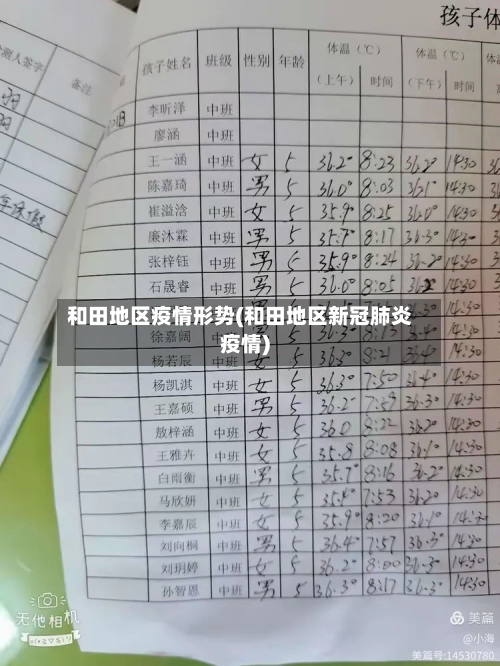 孩子体
测人签字
备注
孩子姓名 班级 性别 年龄 体温（℃）（上午） 时间 体温（℃）（下午） 时间
李昕泽 中班
廖涵 中班
王一涵 中班 女 5 36.2° 8:23 36.2° 14:30
陈嘉琦 中班 男 5 36.0° 8:03 36.1° 14:30
崔溢浛 中班 女 5 35.9° 8:25 36.0° 14:30
廉沐霖 中班 男 5 35.7° 8:17 36.3° 14:30
张梓钰 中班 男 5 35.9° 8:24 36.2° 14:30
石晟睿 中班 男 5 36.0° 8:05 36.2° 14:30
和田地区疫情形势(和田地区新冠肺炎
疫情)
徐嘉阔 中班
杨若辰 中班 8:21 14:30
杨凯淇 中班 女 5 36.3° 7:50 36.4° 14:30
王嘉硕 中班 男 5 36.2° 7:59 36.3° 14:30
敖梓涵 中班 女 5 36.0 8:22 36.2° 14:30
王雅卉 中班 女 5 35.8 8:08 36.1° 14:30
白雨衡 中班 男 5 35.7° 8:16 36.2° 14:30
马欣妍 中班 女 5 35.4° 7:53 36.2° 14:30
李嘉辰 中班 女 5 35.9° 8:20 36.1° 14:30
刘向桐 中班 男 5 36.4° 7:57 36.3° 14:30
刘玥婷 中班 女 5 36.2° 8:00 36.3° 14:30
孙智恩 中班 男 5 36.3° 8:17 36.3° 14:30
无他相机
美篇
@小海
美篇号:14530780